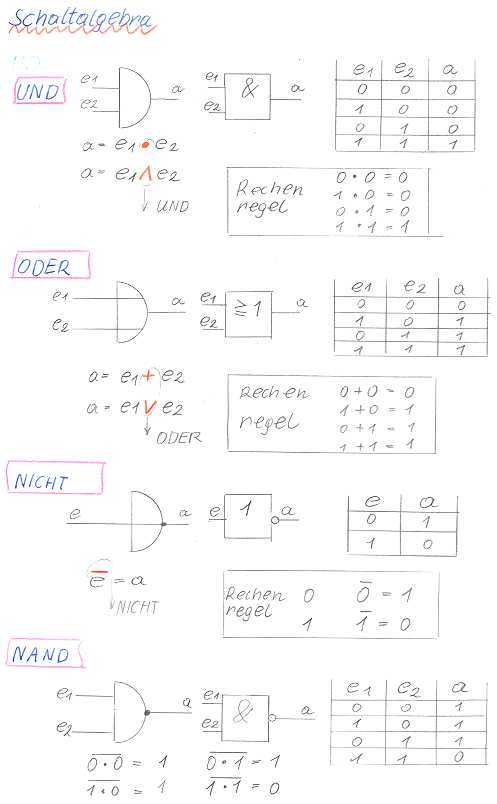 Schaltalgebra
UND
e1
e2
a
e1
e2
&
a
e1 e2 a
0 0 0
1 0 0
0 1 0
1 1 1
a = e1 • e2
a = e1 ∧ e2
UND
Rechen
regel
0 • 0 = 0
1 • 0 = 0
0 • 1 = 0
1 • 1 = 1
ODER
e1
e2
a
e1
e2
≥1
a
e1 e2 a
0 0 0
1 0 1
0 1 1
1 1 1
a = e1 + e2
a = e1 ∨ e2
ODER
Rechen
regel
0 + 0 = 0
1 + 0 = 1
0 + 1 = 1
1 + 1 = 1
NICHT
e
a
e
1
a
e a
0 1
1 0
e̅ = a
NICHT
Rechen
regel
0 0̅ = 1
1 1̅ = 0
NAND
e1
e2
a
e1
e2
&
a
e1 e2 a
0 0 1
1 0 1
0 1 1
1 1 0
0̅ ̅•̅ ̅0̅ = 1 0̅ ̅•̅ ̅1̅ = 1
1̅ ̅•̅ ̅0̅ = 1 1̅ ̅•̅ ̅1̅ = 0